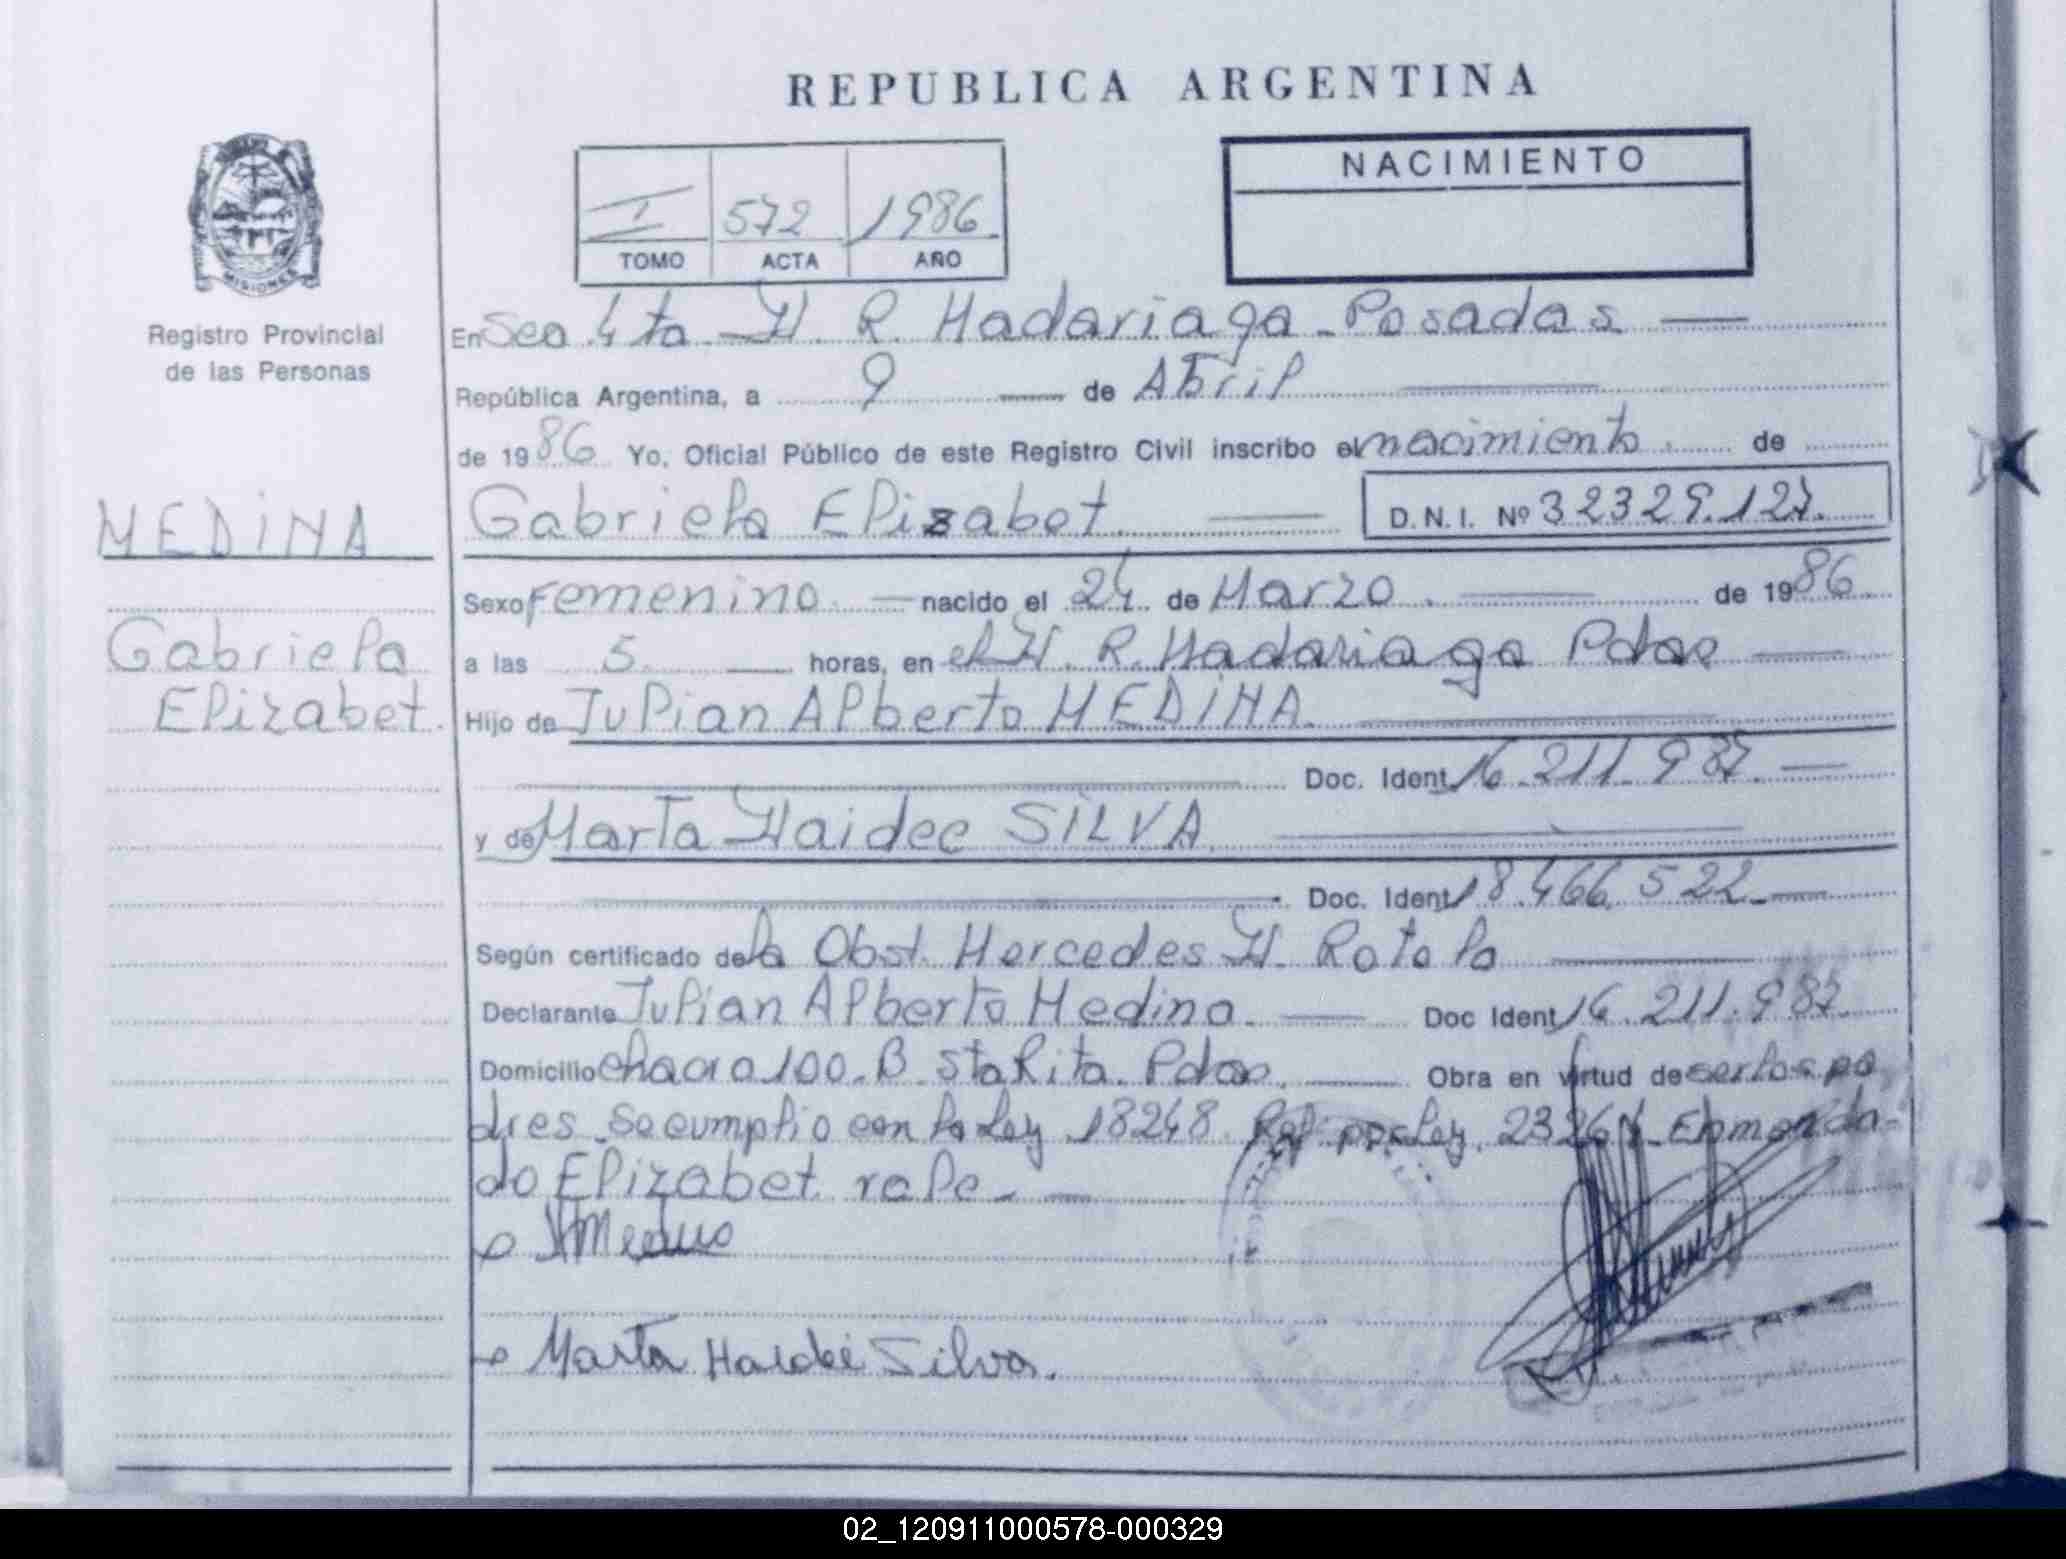 REPUBLICA ARGENTINA
NACIMIENTO
I 572 1986
TOMO ACTA AÑO
MISIONES
Registro Provincial
de las Personas
En Secc 4ta H. R. Madariaga - Posadas
República Argentina, a 9 de Abril
de 1986 Yo, Oficial Público de este Registro Civil inscribo el nacimiento de
MEDINA
Gabriela Elizabet D.N.I. Nº 32329.127.
Gabriela
Elizabet.
Sexo Femenino nacido el 24 de Marzo de 1986
a las 5 horas, en el H. R. Madariaga Pdas
Hijo de Julian Alberto MEDINA
Doc. Ident 16.211.987
y de Marta Haidee SILVA
Doc. Ident 18.466.522
Según certificado de la Obst. Mercedes H. Rotela
Declarante Julian Alberto Medina Doc Ident 16.211.987
Domicilio chacra 100. B. Sta Rita. Pdas Obra en virtud de ser los pa
dres se cumplio con la Ley 18248 por Ley 23264 - Enmenda
do Elizabet vale -
Marta Haidee Silva.
02_120911000578-000329